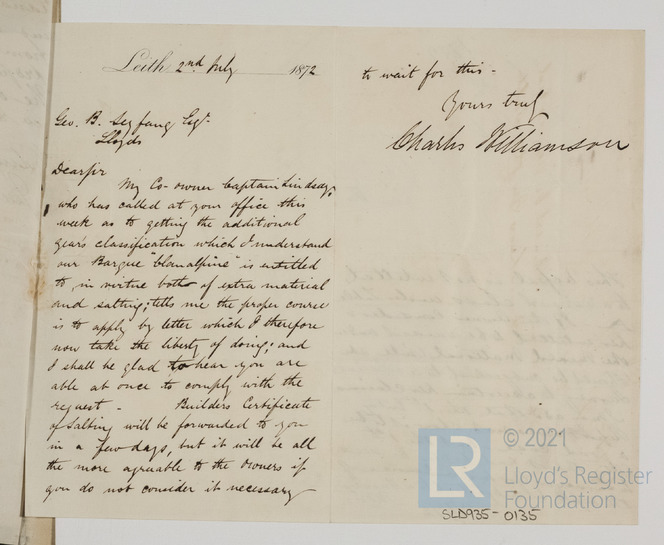 Leith 2nd July 1872
Geo. B. Seyfang Esqr.
Lloyds
Dear Sir
My Co-owner Captain Lindsay,
who has called at your office this
week as to getting the additional
year's classification which I understand
our Barque "Clanalpine" is entitled
to, in virtue both of extra material
and salting; tells me the proper course
is to apply by letter which I therefore
now take the liberty of doing; and
I shall be glad to hear you are
able at once to comply with the
request - Builders Certificate
of Salting will be forwarded to you
in a few days, but it will be all
the more agreeable to the owners if
you do not consider it necessary
to wait for this -
Yours truly
Charles Williamson
LR
© 2021
Lloyd's Register
Foundation
SLD935-0135